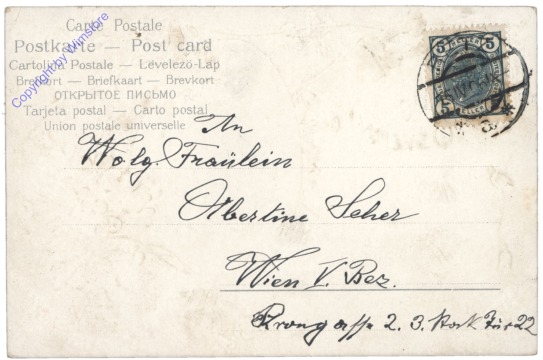 Carte Postale
Postkarte — Post card
Cartolina Postale — Levelezö-Lap
Brefkort — Briefkaart — Brevkort
ОТКРЫТОЕ ПИСЬМО
Tarjeta postal — Carto postal
Union postale universelle
Copyright by Winstore
5 5
5 5
3
An
Wolg. Fräulein
Albertine Seher
Wien V. Bez.
2. 3. Stock Tür 22